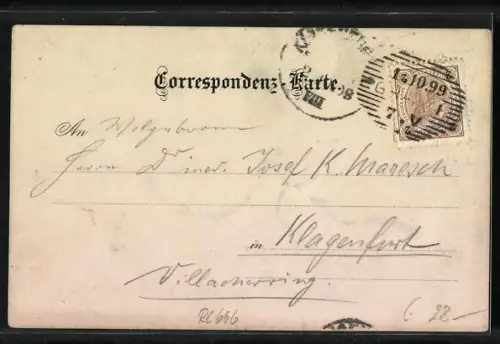 Correspondenz-Karte.
16.10.99
An Wolgeboren
Herrn Dr med. Josef K. Maresch
in Klagenfurt
Villacherring.
RC646
22-